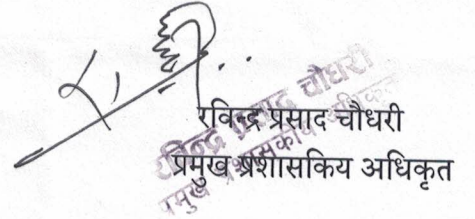 रविन्द्र प्रसाद चौधरी
प्रमुख प्रशासकिय अधिकृत
रविन्द्र प्रसाद चौधरी
प्रमुख प्रशासकीय अधिकृत